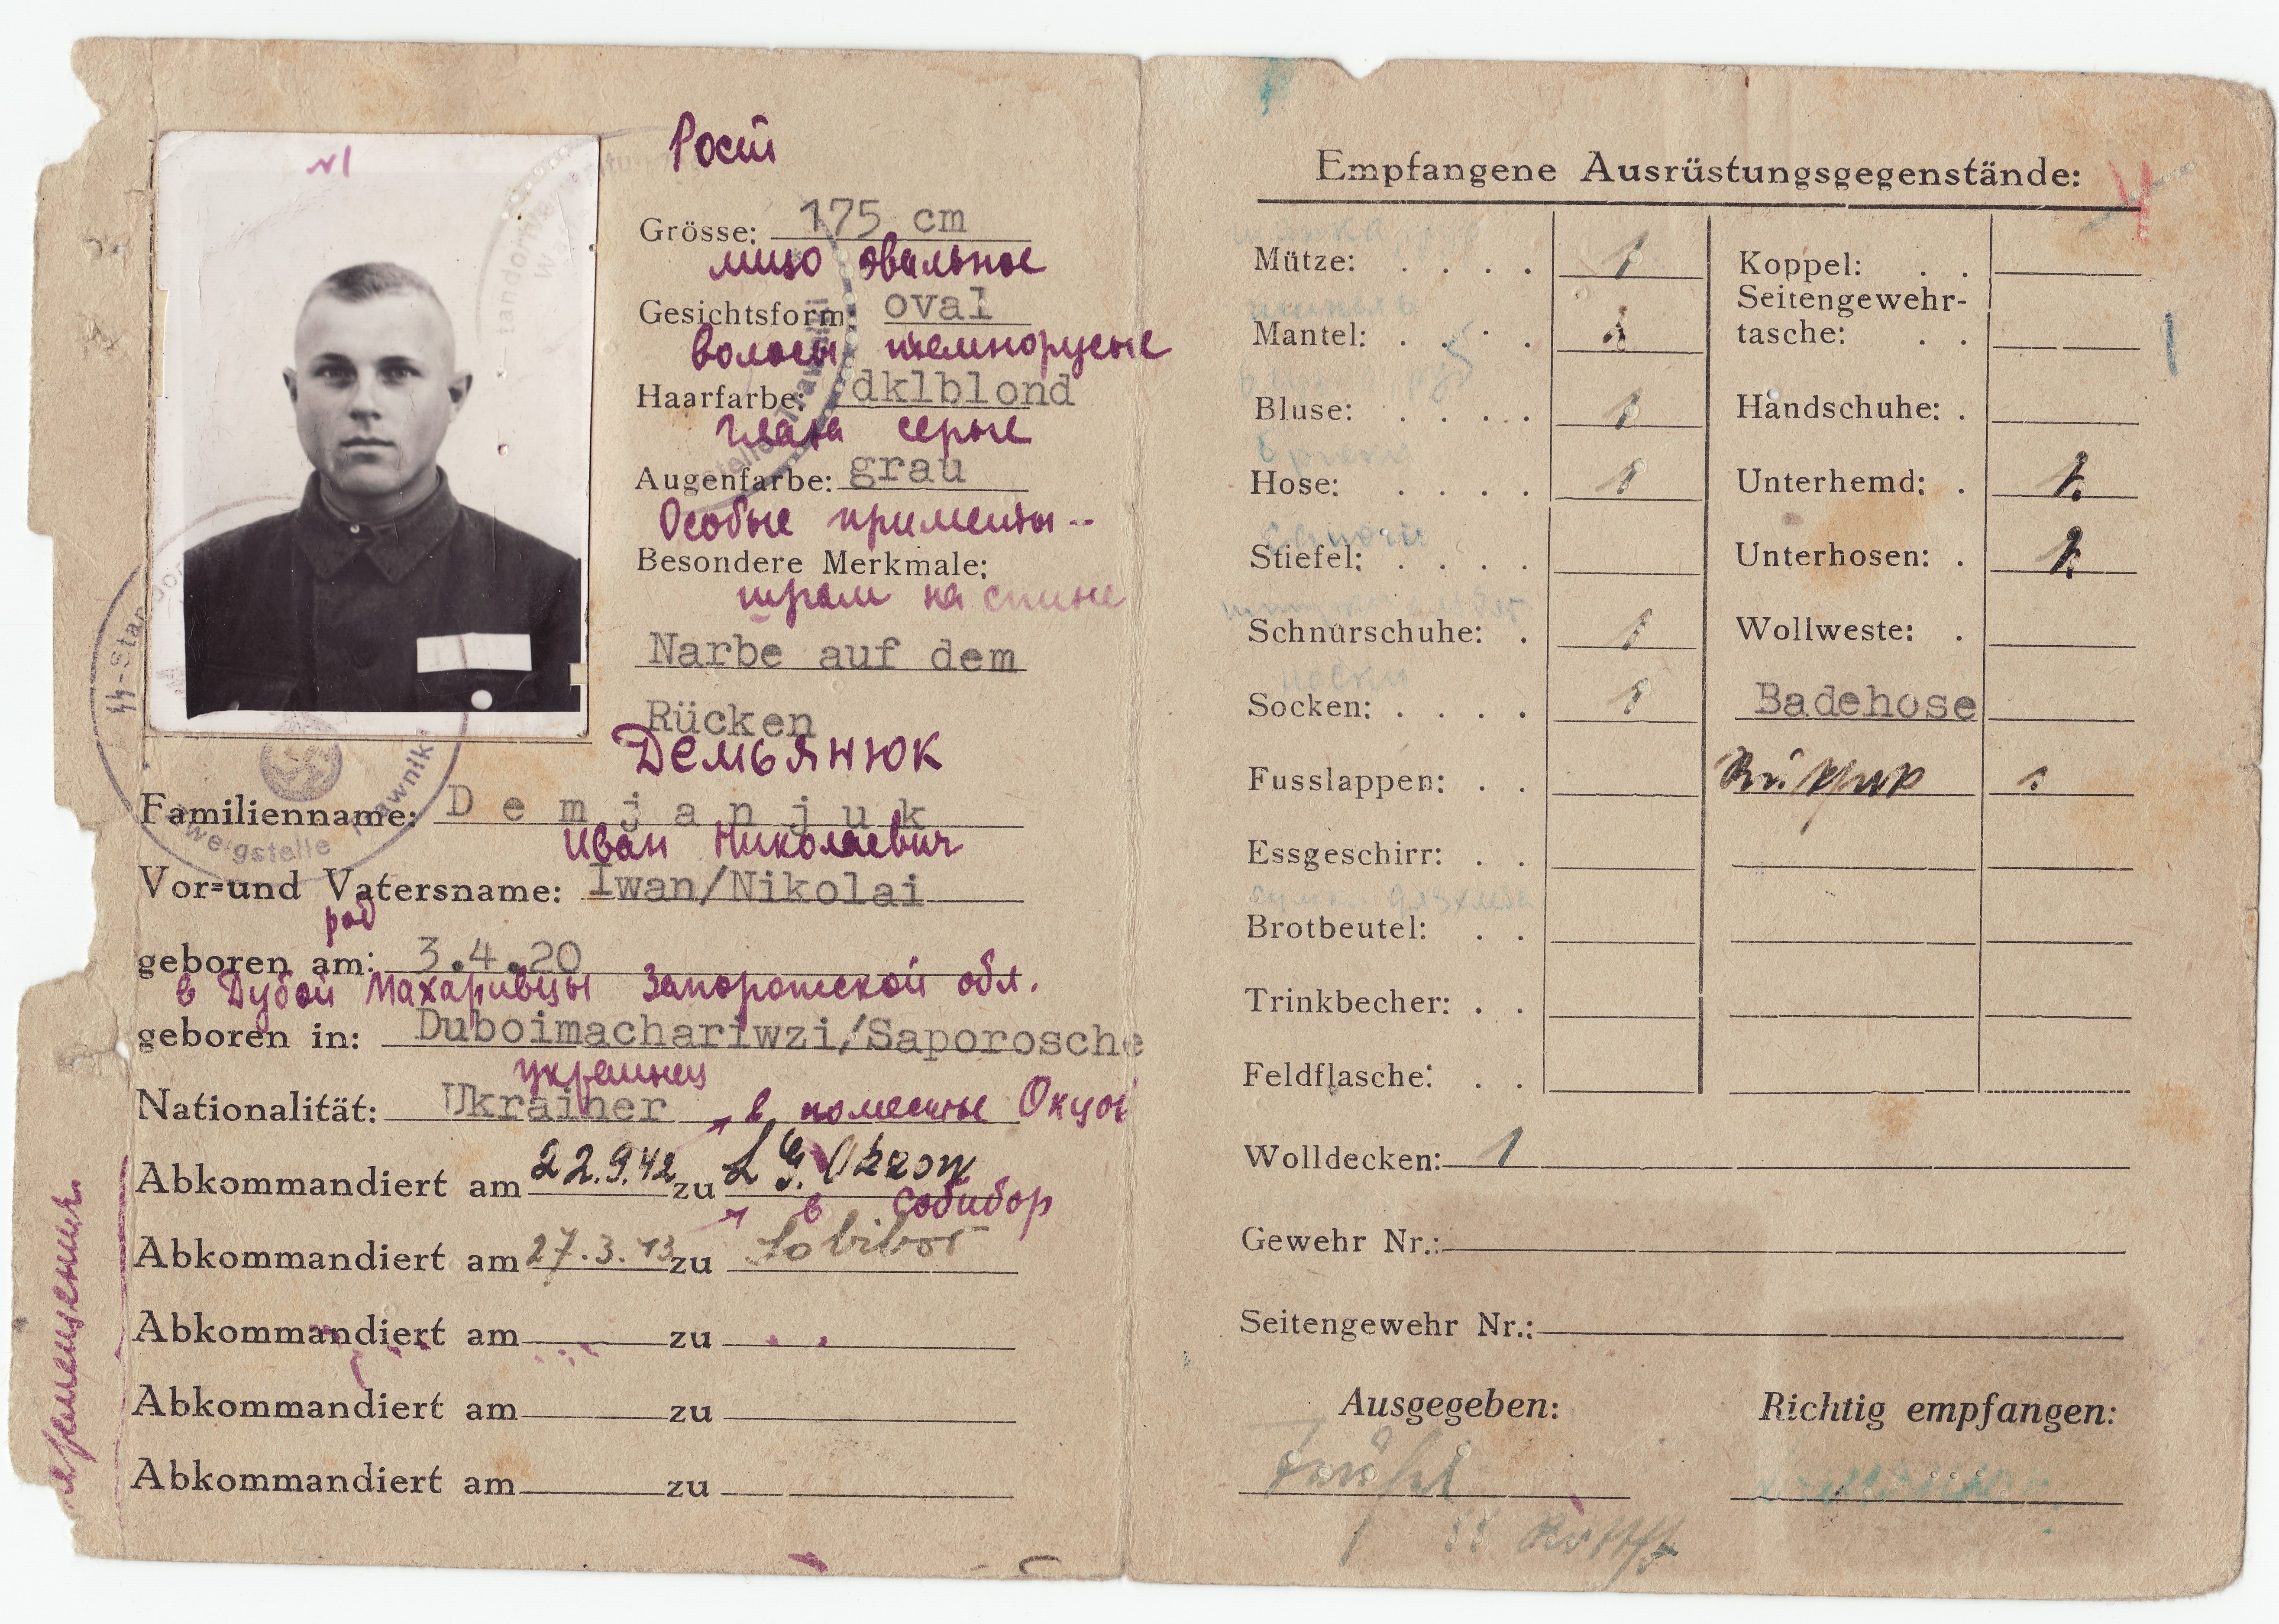 №1
Рост
Grösse: 175 cm
лицо овальное
Gesichtsform: oval
волосы темнорусые
Haarfarbe: dklblond
глаза серые
Augenfarbe: grau
Особые приметы--
Besondere Merkmale:
шрам на спине
Narbe auf dem
Rücken
Демьянюк
Familienname: Demjanjuk
Иван Николаевич
Vor=und Vatersname: Iwan/Nikolai
род
geboren am: 3.4.20
в Дубой Махаривцы Запорожской обл.
geboren in: Duboimachariwzi/Saporosche
украинец
Nationalität: Ukrainer
в поместье Окцов
Abkommandiert am 22.9.42 zu L.G. Okzow
в Собибор
Abkommandiert am 27.3.43 zu Sobibor
Abkommandiert am zu
Abkommandiert am zu
Abkommandiert am zu
Empfangene Ausrüstungsgegenstände:
Mütze: . . . . 1 Koppel: . .
Mantel: . . . 1 Seitengewehr-
tasche: . .
Bluse: . . . . 1 Handschuhe: .
Hose: . . . . 1 Unterhemd: . 2
Stiefel: . . . . Unterhosen: . 2
Schnürschuhe: . 1 Wollweste: .
Socken: . . . . 1 Badehose
Fusslappen: . .
Essgeschirr: . .
Brotbeutel: . .
Trinkbecher: . .
Feldflasche: . .
Wolldecken: 1
Gewehr Nr.:
Seitengewehr Nr.:
Ausgegeben: Richtig empfangen: